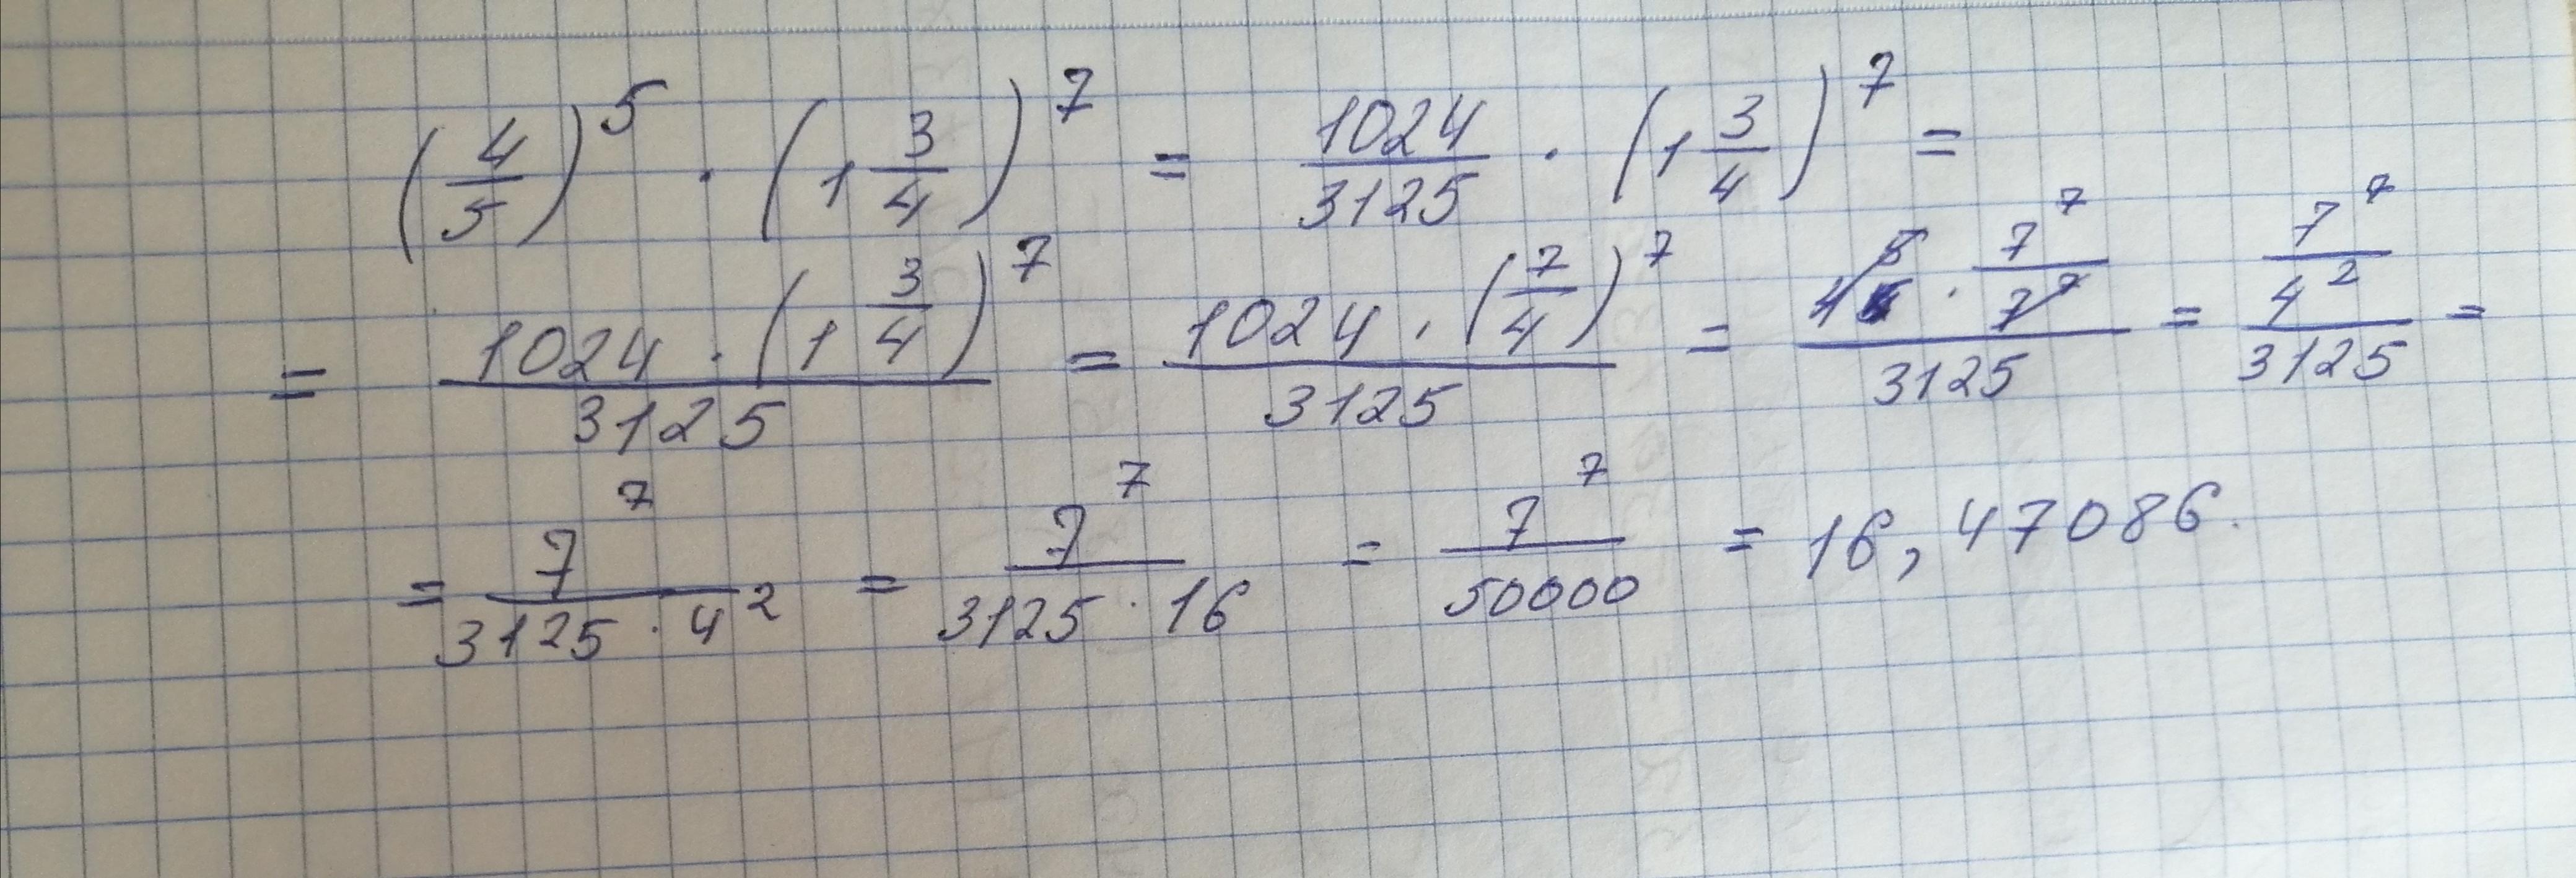 (4/5)^5 · (1 3/4)^7 = 1024/3125 · (1 3/4)^7 =
= (1024 · (1 3/4)^7)/3125 = (1024 · (7/4)^7)/3125 = (4^5 · 7^7/7^7)/3125 = (7^7/4^2)/3125 =
= 7^7/(3125 · 4^2) = 7^7/(3125 · 16) = 7^7/50000 = 16,47086.